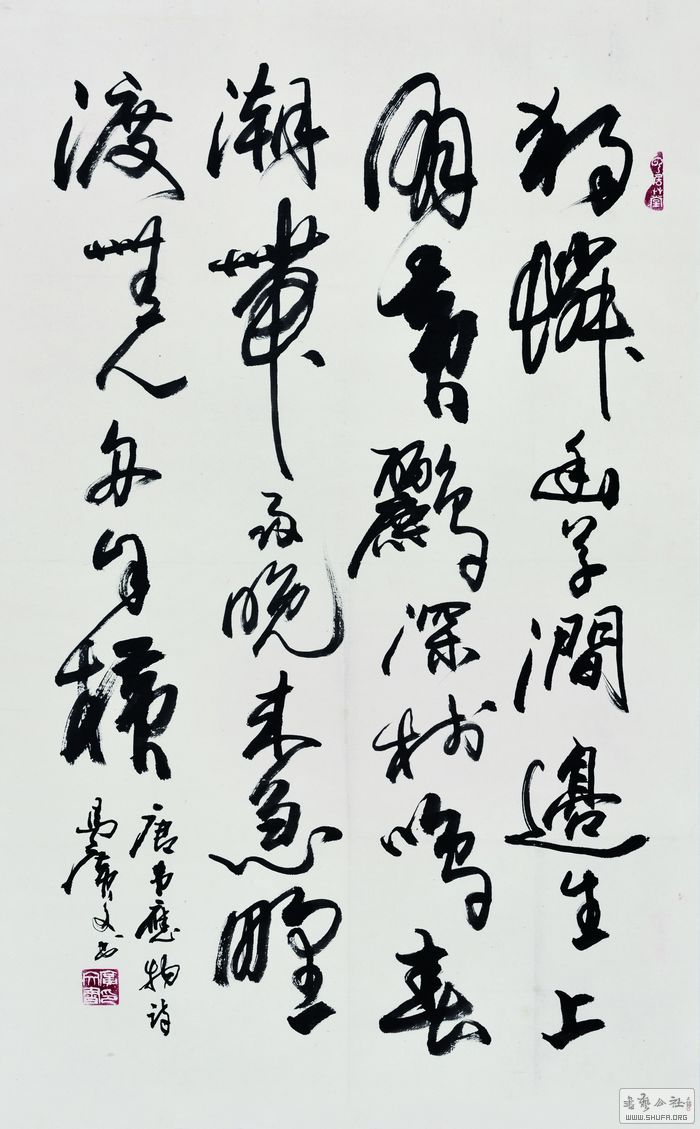 獨憐幽草澗邊生上
有黃鸝深樹鳴春
潮帶雨晚來急野
渡無人舟自橫
唐韋應物詩
馬廣文书
書藝公社
WWW.SHUFA.ORG